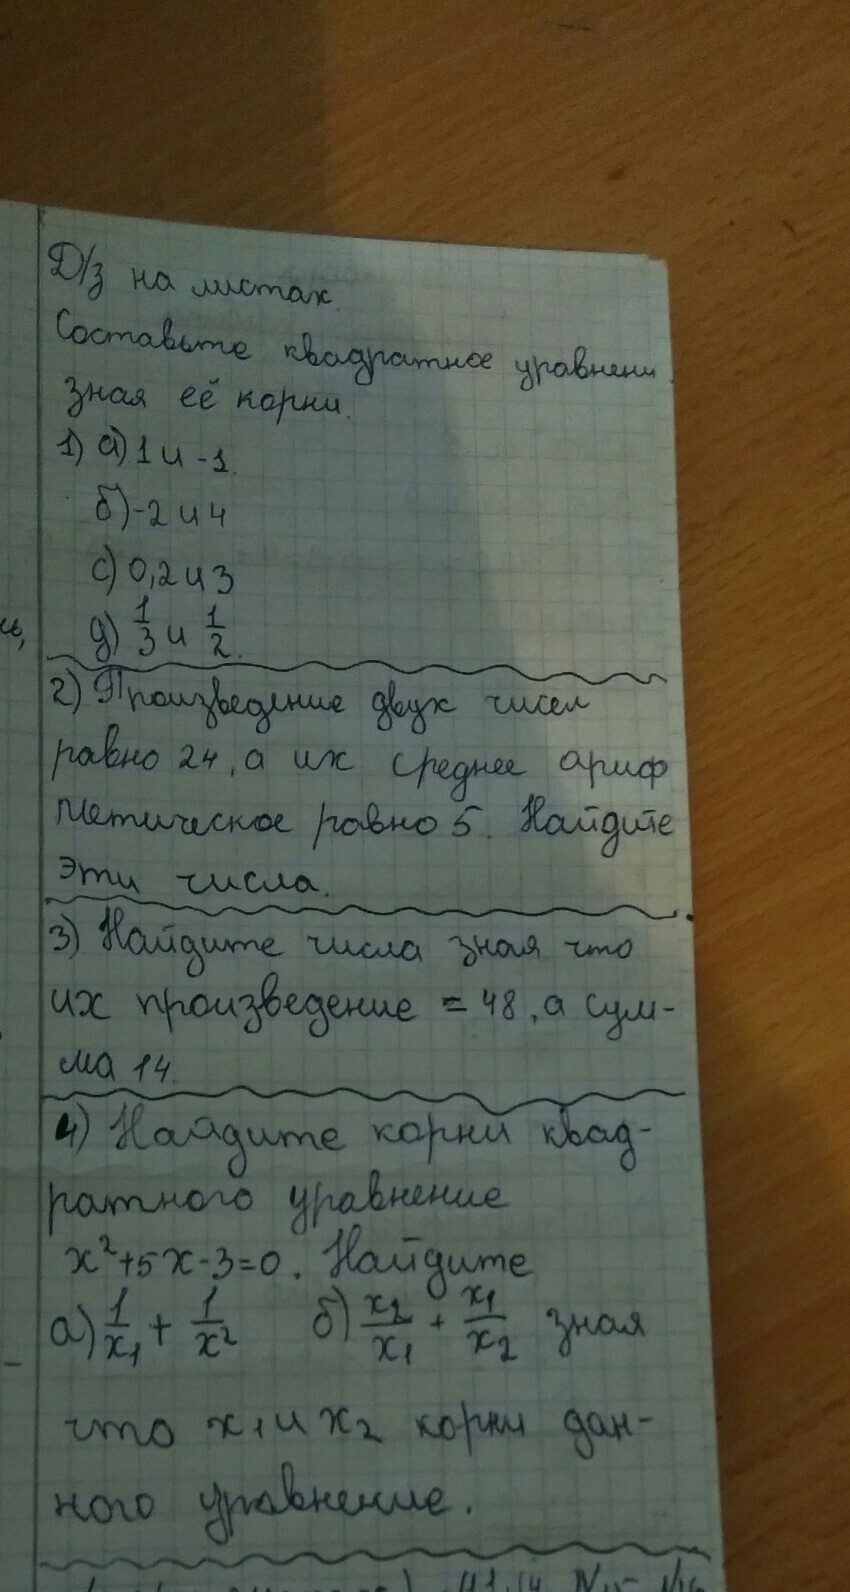 Д/з на листах.
Составьте квадратное уравнени
зная её корни.
1) а) 1 и -1.
б) -2 и 4
с) 0,2 и 3
д) 1/3 и 1/2.
2) Произведение двух чисел
равно 24, а их среднее ариф
метическое равно 5. Найдите
эти числа.
3) Найдите числа зная что
их произведение = 48, а сум-
ма 14.
4) Найдите корни квад-
ратного уравнение
x²+5x-3=0. Найдите
а) 1/x₁ + 1/x² б) x₂/x₁ + x₁/x₂ зная
что x₁ и x₂ корни дан-
ного уравнение.